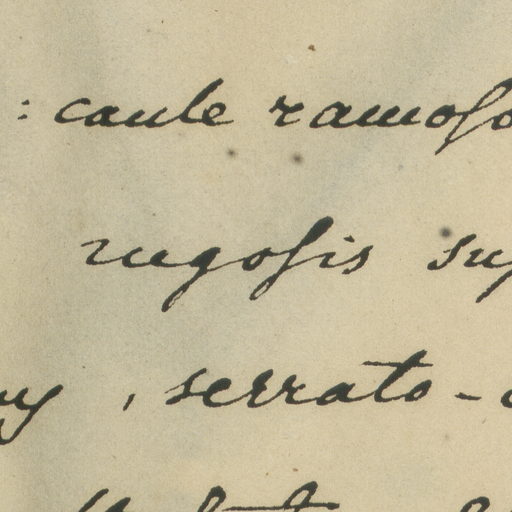 : caule ramoso
rugosis sup
, serrato-